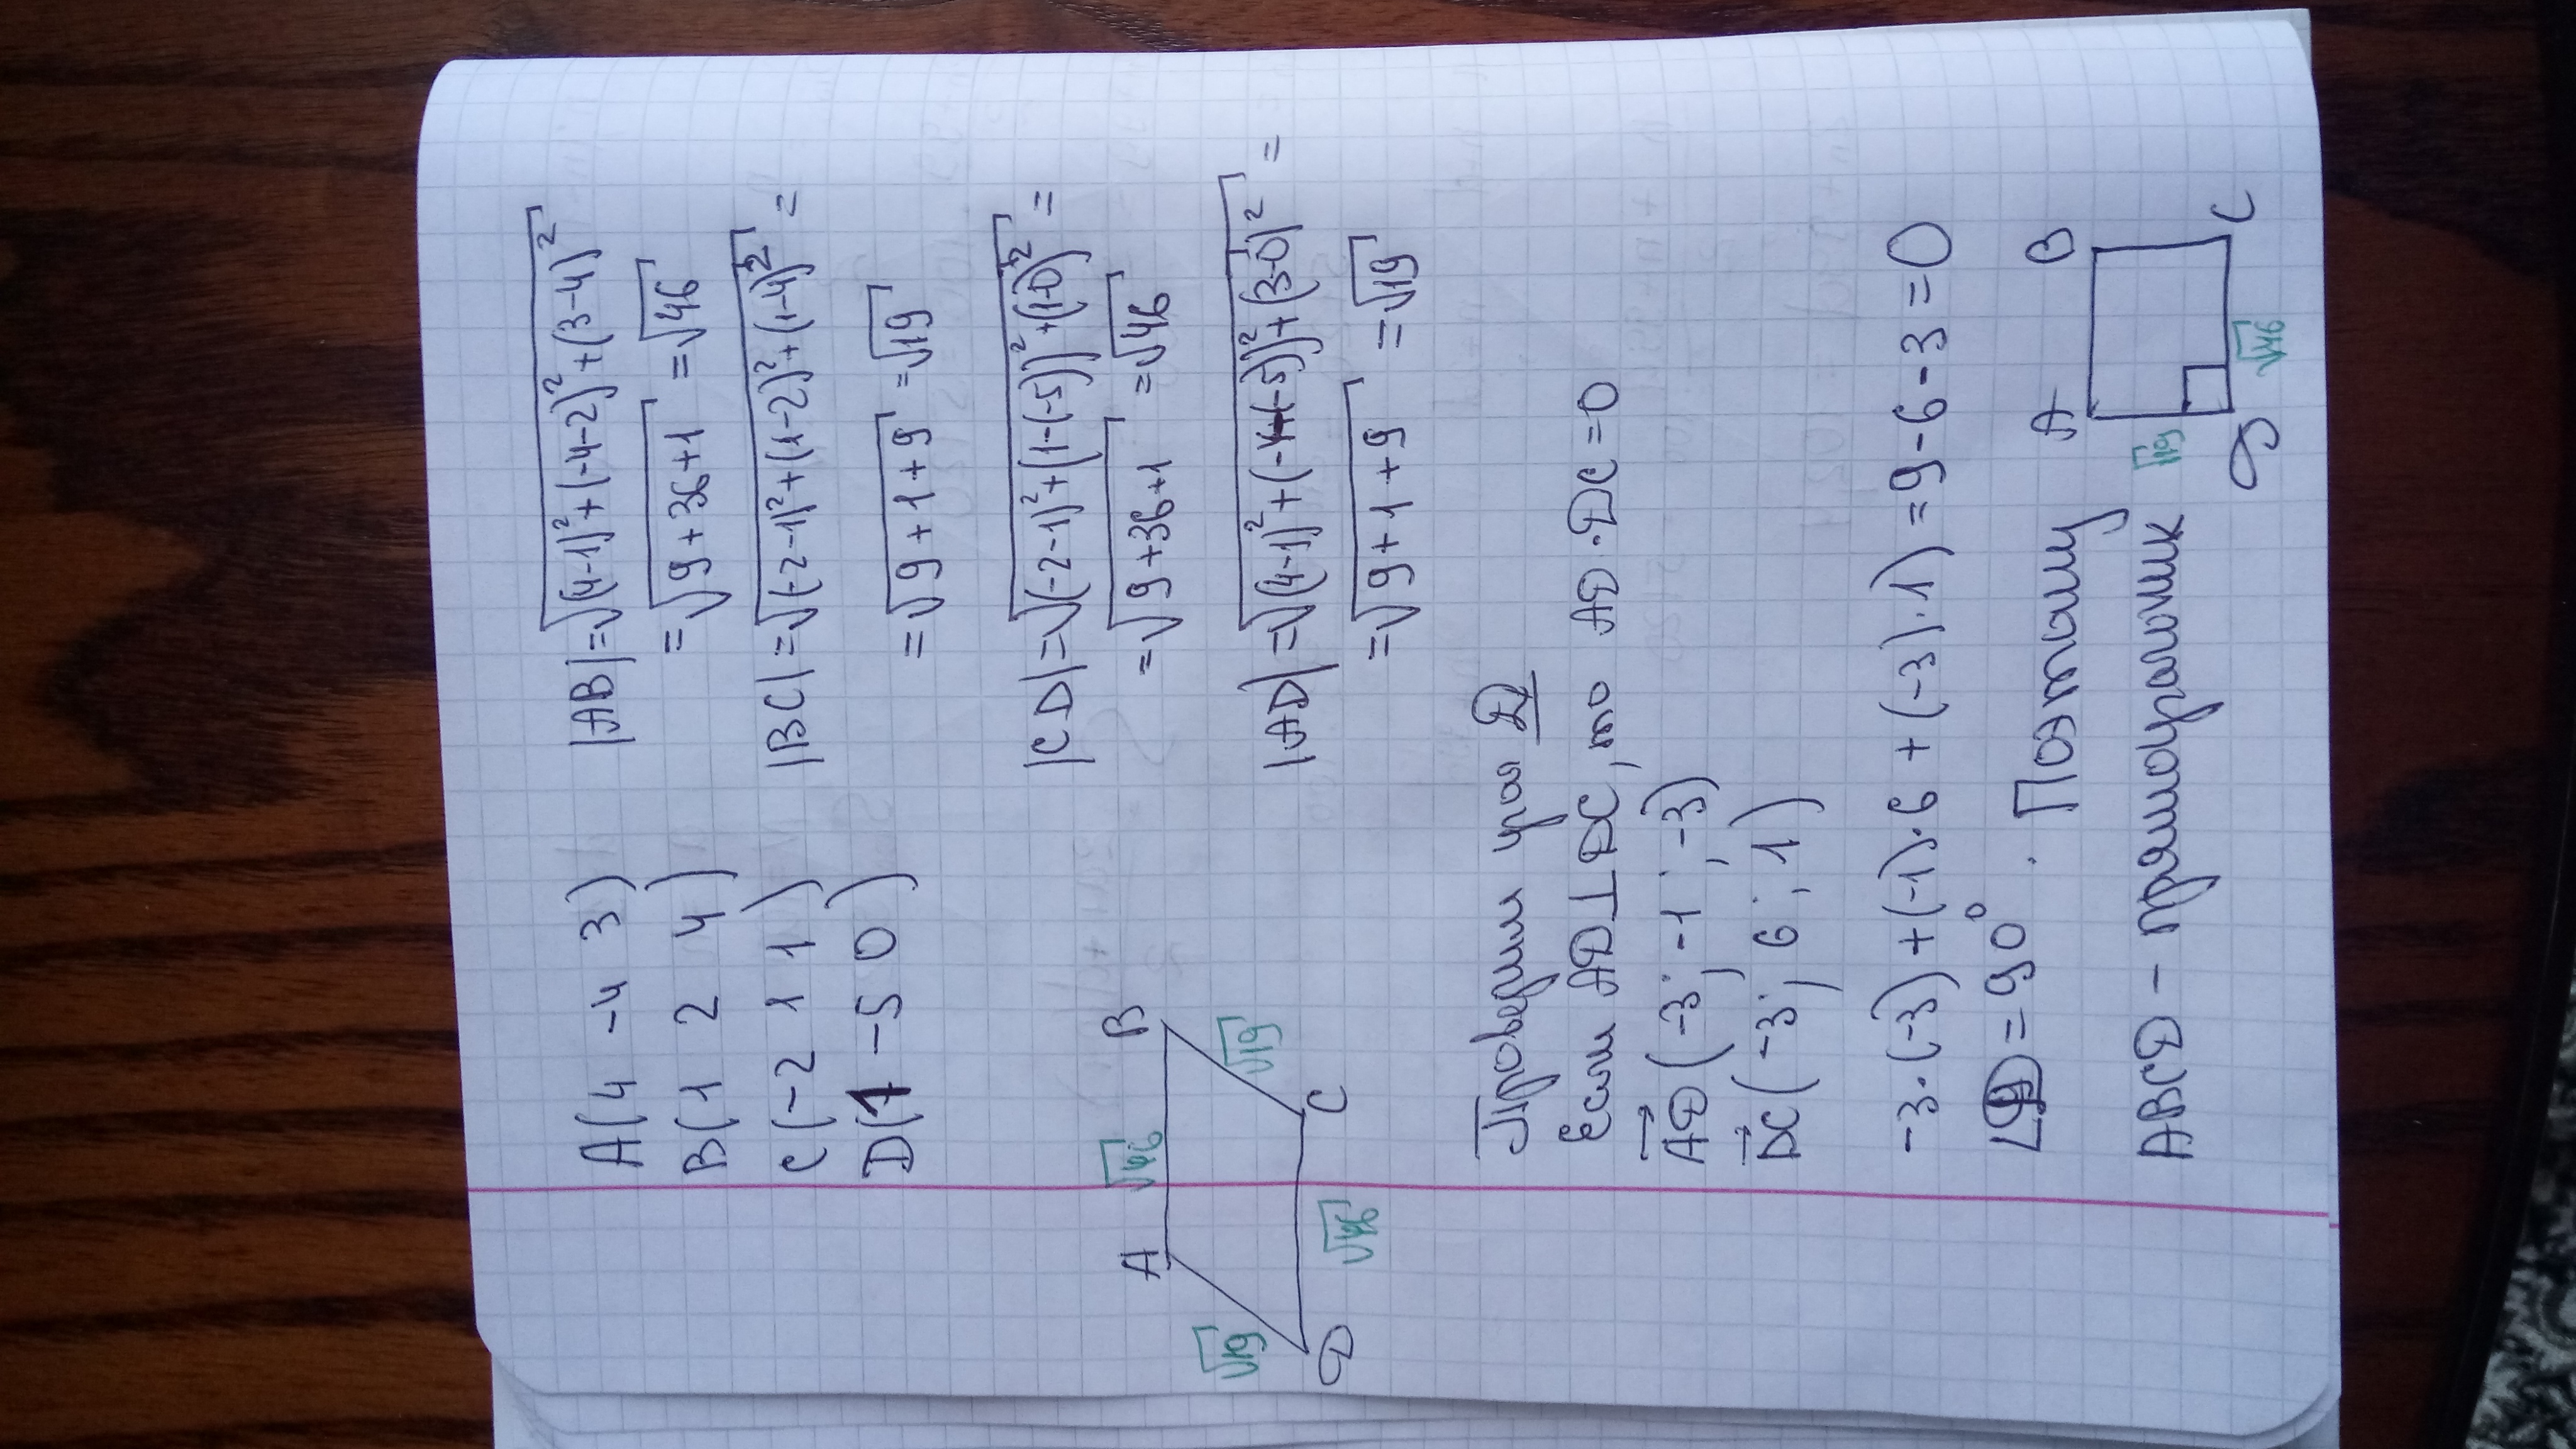 A(4 -4 3)
B(1 2 4)
C(-2 1 1)
D(1 -5 0)
|AB|=√(4-1)²+(-4-2)²+(3-4)²
=√9+36+1 =√46
|BC|=√(-2-1)²+(1-2)²+(1-4)² =
=√9+1+9 =√19
|CD|=√(-2-1)²+(1-(-5))²+(1-0)² =
=√9+36+1 =√46
|AD|=√(4-1)²+(-4-(-5))²+(3-0)² =
=√9+1+9 =√19
A B
√46
√19 √19
D C
√46
Проверим угол D
Если AD⊥DC, то AD·DC=0
AD(-3; -1; -3)
DC(-3; 6; 1)
-3·(-3)+(-1)·6+(-3)·1)=9-6-3=0
∠D=90°. Поэтому
ABCD - прямоугольник
A B
√19
D C
√46